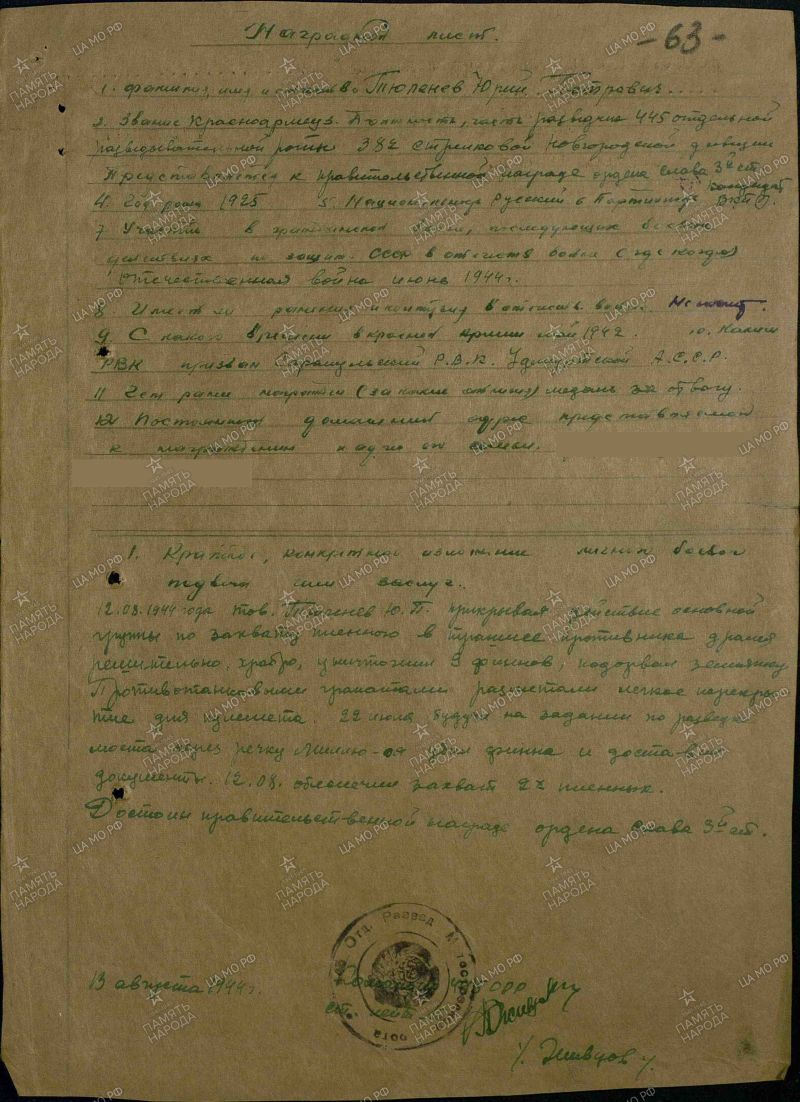 Наградной лист.
- 63 -
1. фамилия, имя и отчество Тюленев Юрий Петрович
2. Звание Красноармеец. Должность, часть разведчик 445 отдельной
разведывательной роты 382 стрелковой Новгородской дивизии
Представляется к правительственной награде ордена слава 3й ст.
4. Год рожд 1925 5. Национальность Русский 6 Партийность кандидат ВКП
7 Участие в гражданской войне, последующих боевых
действиях по защите СССР в отечеств войне (где когда)
Отечественная война июнь 1944г.
8 Имеет ли ранения и контузии в отечеств войне. Не имеет.
9 С какого времени в красной армии май 1942 10. Каким
РВК призван Сарапульский Р.В.К. Удмуртской А.С.С.Р.
11 Чем ранее награжден (за какие отличия) медаль за отвагу.
12 Постоянный домашний адрес представляемого
к награждению и адрес его семьи.
1. Краткое, конкретное изложение личного боевого
подвига или заслуг.
12.08.1944 года тов. Тюленев Ю.П. прикрывая действие основной
группы по захвату пленного в траншее противника дрался
решительно, храбро, уничтожил 3 финнов, подорвал землянку
Противотанковыми гранатами разметали легкое перекры-
тие для пулемета. 22 июля будучи на задании по разведке
моста через речку убил финна и доставил
документы. 12.08. обеспечил захват 2х пленных.
Достоин правительственной награде ордена слава 3й ст.
13 августа 1944г.
Командир 445 ОРР
ст. лейт
Отд. Развед. рота
/. Живцов /.
ПАМЯТЬ НАРОДА
ЦА МО.РФ